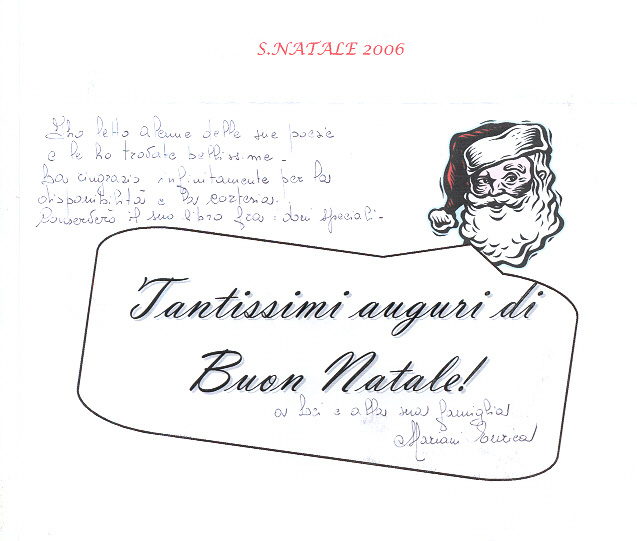 S.NATALE 2006
Ho letto alcune delle sue poesie
e le ho trovate bellissime -
La ringrazio infinitamente per la
disponibilità e la cortesia.
Conserverò il suo libro fra i doni speciali -
Tantissimi auguri di
Buon Natale!
a Lei e alla sua famiglia
Mariani Enrica